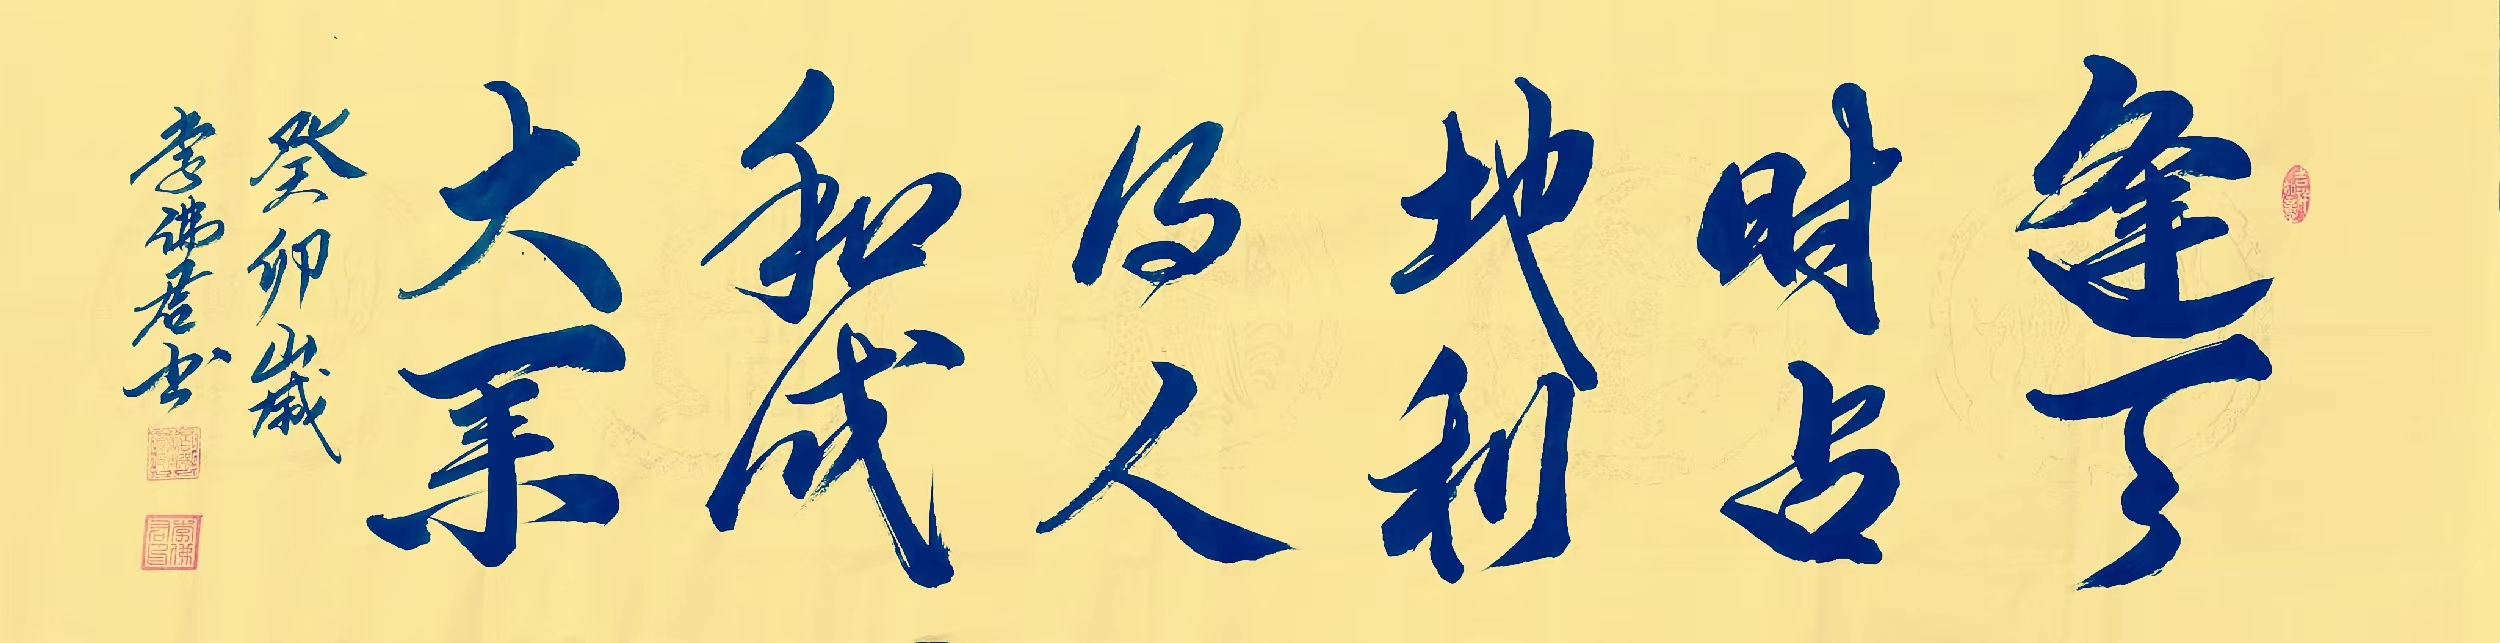 逢天
时占
地利
得人
和成
大業
癸卯歲
李佛君书